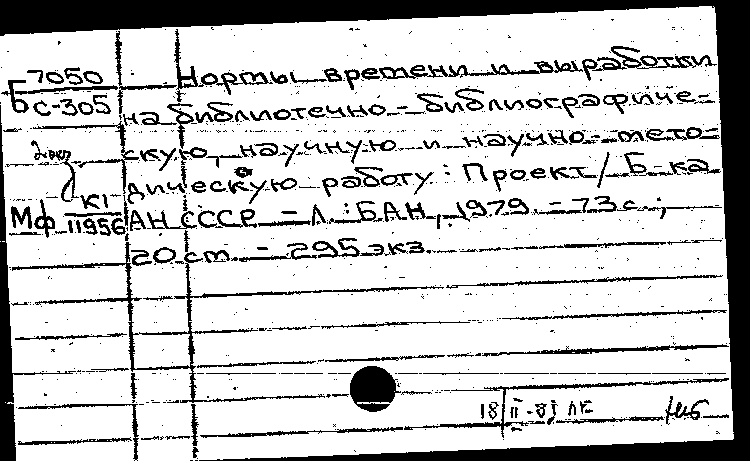 Б 7050
С-305
Мф К1
11956
Нормы времени и выработки
на библиотечно-библиографиче=
скую, научную и научно-мето=
дическую работу: Проект/ Б-ка
АН СССР. - Л.: БАН, 1979. - 73 с.;
20 см. - 295 экз.
18